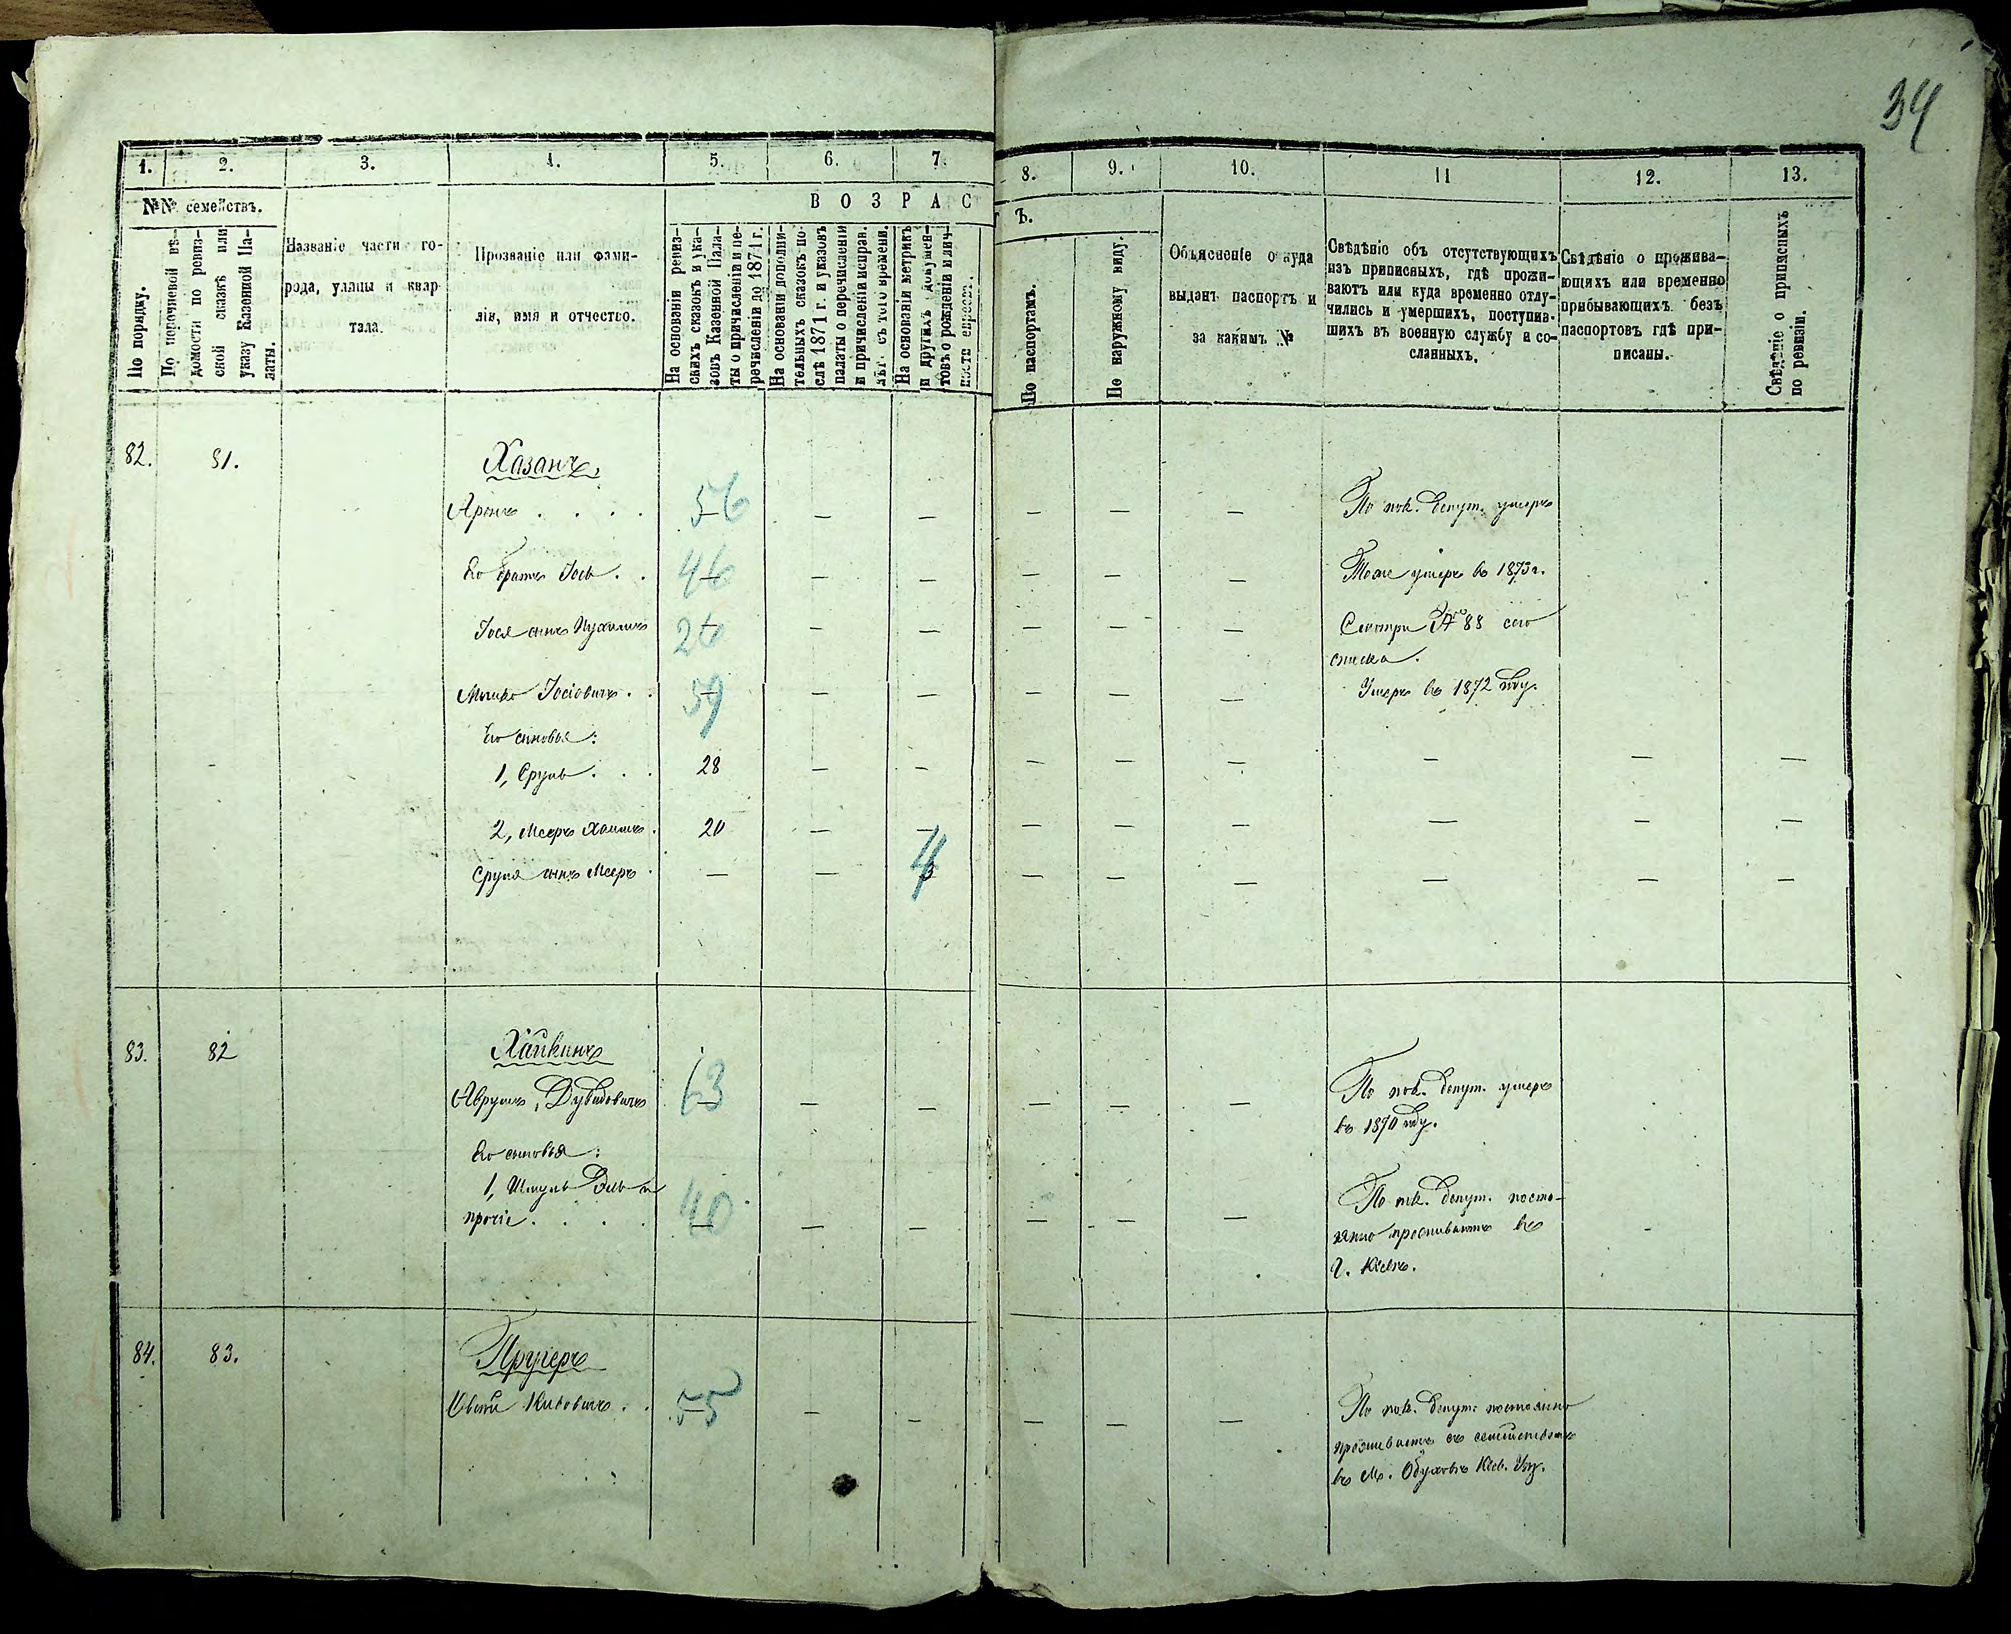 34
1. 2. 3. 4. 5. 6. 7. 8. 9. 10. 11 12. 13.
№№ семействъ.
По порядку.
По поочередной вѣ-
домости по ревиз-
ской сказкѣ или
указу Казенной Па-
латы.
Названіе части го-
рода, улицы и квар-
тала.
Прозваніе или фами-
лія, имя и отчество.
ВОЗРАСТЪ.
На основаніи ревиз-
скихъ сказокъ и ука-
зовъ Казенной Пала-
ты о причисленіи и пе-
речисленіи до 1871 г.
На основаніи дополни-
тельныхъ сказокъ по-
слѣ 1871 г. и указовъ
палаты о перечисленіи
и причисленіи исправ.
лѣт. съ того времени.
На основаніи метрикъ
и другихъ докумен-
товъ о рожденіи и лич-
ности евреевъ.
По паспортамъ.
По наружному виду.
Объясненіе откуда
выданъ паспортъ и
за какимъ №
Свѣдѣніе объ отсутствующихъ
изъ приписныхъ, гдѣ прожи-
ваютъ или куда временно отлу-
чились и умершихъ, поступив-
шихъ въ военную службу и со-
сланныхъ.
Свѣдѣніе о прожива-
ющихъ или временно
прибывающихъ безъ
паспортовъ гдѣ при-
писаны.
Свѣдѣніе о приписныхъ
по ревизіи.
82. 81. Хазанъ
Аронъ . . . . 56 — — — — — По пок. депут. умеръ
Его братъ Іось . . 46 — — — — — Тоже умеръ въ 1873 г.
Іося сынъ 26 — — — — — Смотри № 88 сего
списка.
Мошко Іосіовичъ . . 59 — — — — — Умеръ въ 1872 году.
Его сыновья:
1, Сруль . . . 28 — — — — — — — —
2, Мееръ Хаимъ . 20 — — — — — — — —
Сруля сынъ Мееръ . — — 4 — — — — — —
83. 82 Хайкинъ
Аврумъ Дувидовичъ 63 — — — — — По пок. депут. умеръ
въ 1870 году.
Его сыновья:
1, Шмуль Эль и
прочіе . . . . 40 — — — — — По пок. депут. посто-
янно проживаютъ въ
г. Кіевѣ.
84. 83. Пругеръ
. . 55 — — — — — По пок. депут. постоянно
проживаетъ съ семействомъ
въ м. Обуховѣ Кіев. Уѣз.